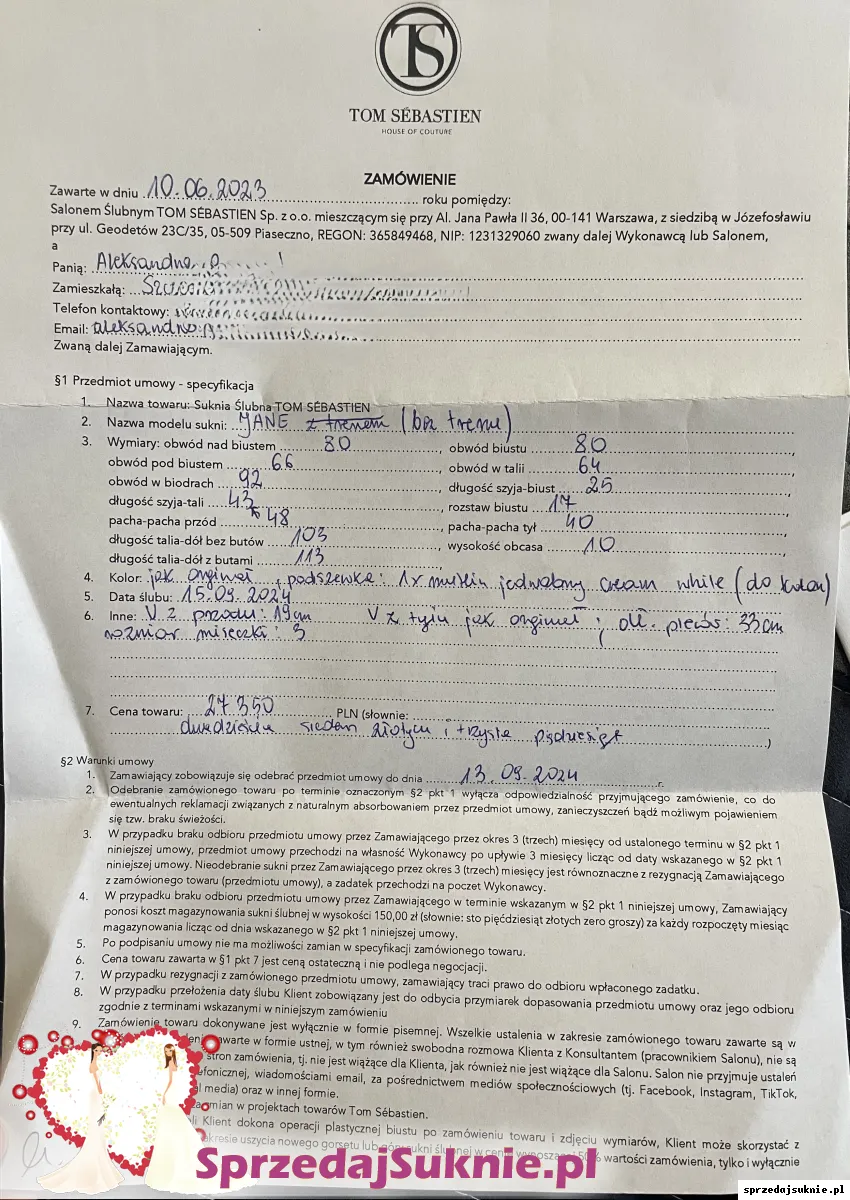 TS
TOM SÉBASTIEN
HOUSE OF COUTURE
ZAMÓWIENIE
Zawarte w dniu 10.06.2023 roku pomiędzy:
Salonem Ślubnym TOM SÉBASTIEN Sp. z o.o. mieszczącym się przy Al. Jana Pawła II 36, 00-141 Warszawa, z siedzibą w Józefosławiu
przy ul. Geodetów 23C/35, 05-509 Piaseczno, REGON: 365849468, NIP: 1231329060 zwany dalej Wykonawcą lub Salonem,
a
Panią: Aleksandra
Zamieszkałą:
Telefon kontaktowy:
Email:
Zwaną dalej Zamawiającym.
§1 Przedmiot umowy - specyfikacja
1. Nazwa towaru: Suknia Ślubna TOM SÉBASTIEN
2. Nazwa modelu sukni: JANE z trenem (bez trenu)
3. Wymiary: obwód nad biustem 80, obwód biustu 80,
obwód pod biustem 66, obwód w talii 64,
obwód w biodrach 92, długość szyja-biust 25,
długość szyja-tali 43, rozstaw biustu 17,
pacha-pacha przód 48, pacha-pacha tył 40,
długość talia-dół bez butów 103, wysokość obcasa 10,
długość talia-dół z butami 113,
4. Kolor: jak orginał, podszewka: 1x muślin jedwabny cream while (do kolan)
5. Data ślubu: 15.09.2024
6. Inne: V z przodu: 19cm V z tyłu jak orginał ; dł. pleców: 33cm
rozmiar miseczki: 3
7. Cena towaru: 27 350 PLN (słownie:
dwadzieścia siedem złotych i trzysta pięćdziesiąt)
§2 Warunki umowy
1. Zamawiający zobowiązuje się odebrać przedmiot umowy do dnia 13.09.2024 r.
2. Odebranie zamówionego towaru po terminie oznaczonym §2 pkt 1 wyłącza odpowiedzialność przyjmującego zamówienie, co do
ewentualnych reklamacji związanych z naturalnym absorbowaniem przez przedmiot umowy, zanieczyszczeń bądź możliwym pojawieniem
się tzw. braku świeżości.
3. W przypadku braku odbioru przedmiotu umowy przez Zamawiającego przez okres 3 (trzech) miesięcy od ustalonego terminu w §2 pkt 1
niniejszej umowy, przedmiot umowy przechodzi na własność Wykonawcy po upływie 3 miesięcy licząc od daty wskazanego w §2 pkt 1
niniejszej umowy. Nieodebranie sukni przez Zamawiającego przez okres 3 (trzech) miesięcy jest równoznaczne z rezygnacją Zamawiającego
z zamówionego towaru (przedmiotu umowy), a zadatek przechodzi na poczet Wykonawcy.
4. W przypadku braku odbioru przedmiotu umowy przez Zamawiającego w terminie wskazanym w §2 pkt 1 niniejszej umowy, Zamawiający
ponosi koszt magazynowania sukni ślubnej w wysokości 150,00 zł (słownie: sto pięćdziesiąt złotych zero groszy) za każdy rozpoczęty miesiąc
magazynowania licząc od dnia wskazanego w §2 pkt 1 niniejszej umowy.
5. Po podpisaniu umowy nie ma możliwości zamian w specyfikacji zamówionego towaru.
6. Cena towaru zawarta w §1 pkt 7 jest ceną ostateczną i nie podlega negocjacji.
7. W przypadku rezygnacji z zamówionego przedmiotu umowy, zamawiający traci prawo do odbioru wpłaconego zadatku.
8. W przypadku przełożenia daty ślubu Klient zobowiązany jest do odbycia przymiarek dopasowania przedmiotu umowy oraz jego odbioru
zgodnie z terminami wskazanymi w niniejszym zamówieniu
9. Zamówienie towaru dokonywane jest wyłącznie w formie pisemnej. Wszelkie ustalenia w zakresie zamówionego towaru zawarte są w
zawarte w formie ustnej, w tym również swobodna rozmowa Klienta z Konsultantem (pracownikiem Salonu), nie są
stron zamówienia, tj. nie jest wiążące dla Klienta, jak również nie jest wiążące dla Salonu. Salon nie przyjmuje ustaleń
telefonicznej, wiadomościami email, za pośrednictwem mediów społecznościowych (tj. Facebook, Instagram, TikTok,
media) oraz w innej formie.
zamian w projektach towarów Tom Sébastien.
Klient dokona operacji plastycznej biustu po zamówieniu towaru i zdjęciu wymiarów, Klient może skorzystać z
zakresie uszycia nowego gorsetu lub góry sukni ślubnej w cenie wynoszącej 50% wartości zamówienia, tylko i wyłącznie
SprzedajSuknie.pl
sprzedajsuknie.pl